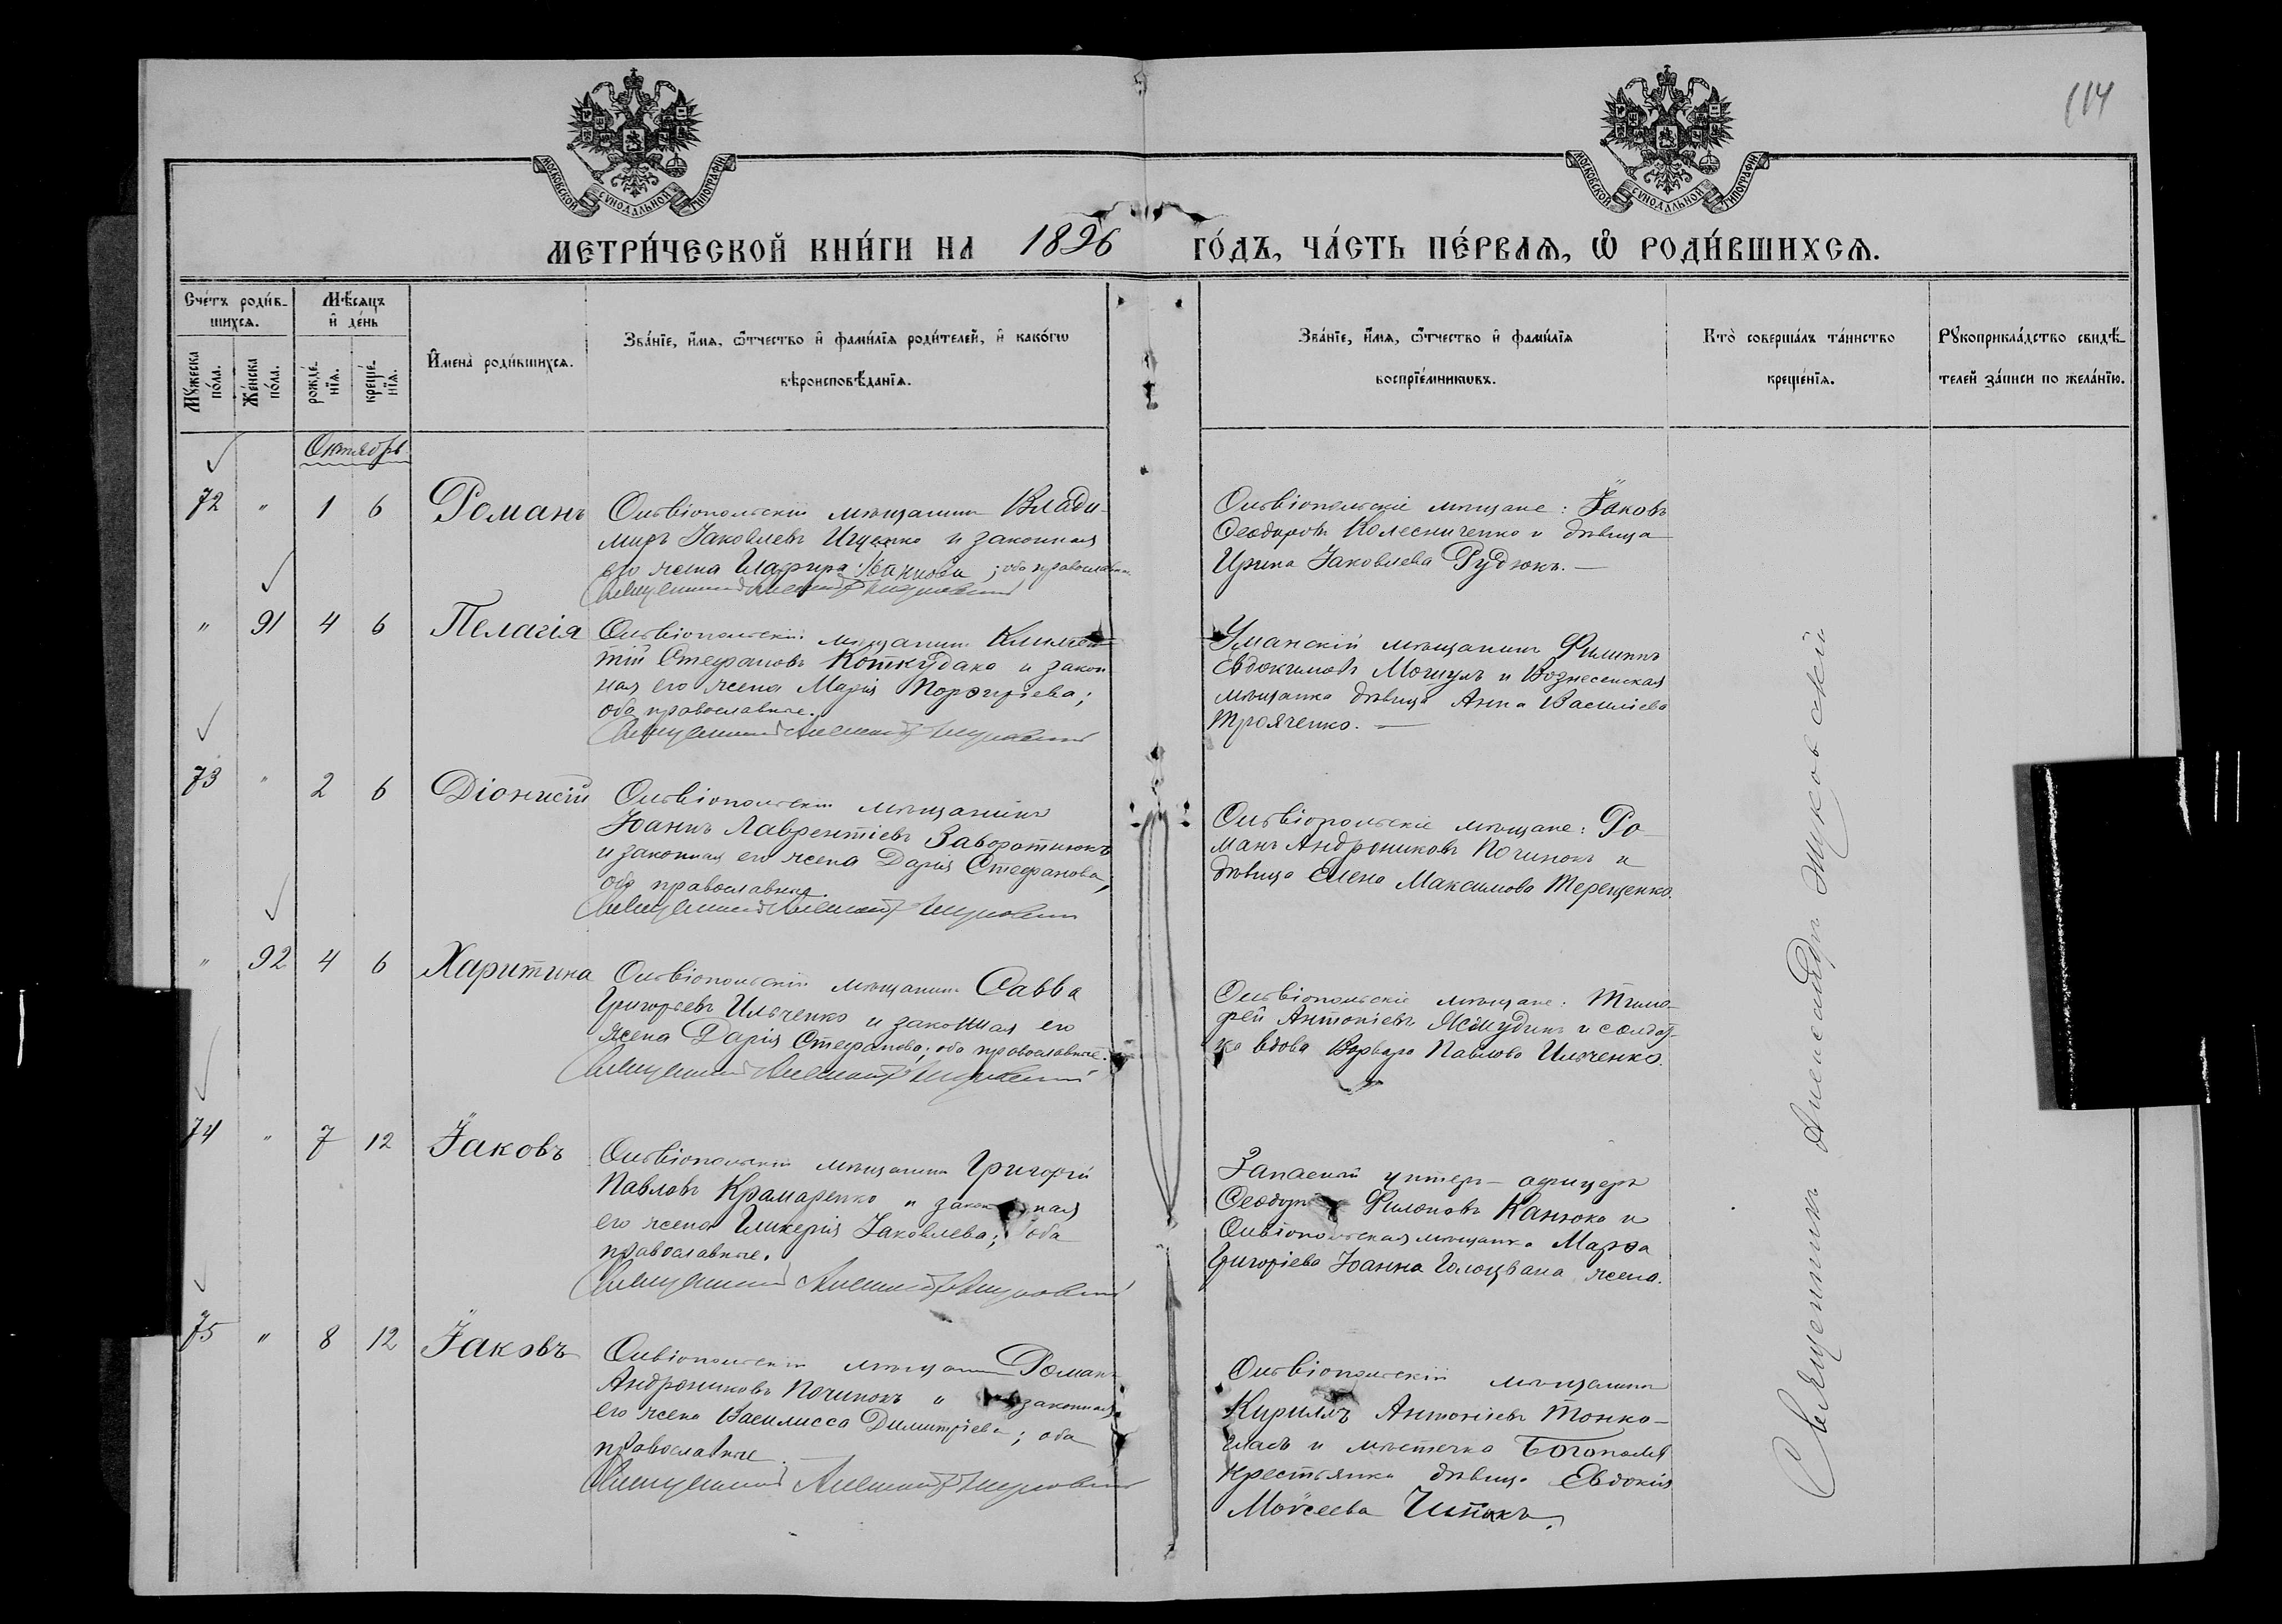 114
МОСКОВСКОЙ СѴНОДАЛЬНОЙ ТИПОГРАФІИ
МОСКОВСКОЙ СѴНОДАЛЬНОЙ ТИПОГРАФІИ
МЕТРИ́ЧЕСКОЙ КНИ́ГИ НА 1896 ГО́ДЪ, ЧА́СТЬ ПЕ́РВАѦ, Ѡ҆ РОДИ́ВШИХСѦ.
Сче́тъ роди́в-
шихсѧ.
Мꙋ́жеска по́ла.
Же́нска по́ла.
Мѣ́сѧцъ
и҆ де́нь
рожде́-
нїѧ.
креще́-
нїѧ.
И҆мена̀ роди́вшихсѧ.
Зва́нїе, и҆́мѧ, ѻ҆́тчество и҆ фамн́лїѧ роди́телей, и҆ како́гѡ
вѣроисповѣ́данїѧ.
Зва́нїе, и҆́мѧ, ѻ҆́тчество и҆ фами́лїѧ
воспрїе́мникѡвъ.
Кто̀ соверша́лъ та́инство
креще́нїѧ.
Рꙋкоприкла́дство свидѣ́-
телей за́писи по жела́нїю.
Октябрь
72 " 1 6 Романъ
Ольвіопольскій мѣщанинъ Влади-
миръ Іаковлевъ Ищенко и законная
его жена Глафира Іоаннова; оба православные
Священникъ Александръ Жуковскій
Ольвіопольскіе мѣщане: Іаковъ
Феодоровъ Колесниченко и дѣвица
Ирина Іаковлева Рудюкъ. —
" 91 4 6 Пелагія
Ольвіопольскій мѣщанинъ Климен-
тій Стефановъ Коткудако и закон
ная его жена Марія Порфиріева;
оба православные.
Священникъ Александръ Жуковскій
Уманскій мѣщанинъ Филиппъ
Евдокимовъ Могиулъ и Вознесенская
мѣщанка дѣвица Анна Василіева
Трояченко. —
73 " 2 6 Діонисій
Ольвіопольскій мѣщанинъ
Іоаннъ Лаврентіевъ Заворотнюкъ
и законная его жена Дарія Стефанова;
оба православные.
Священникъ Александръ Жуковскій
Ольвіопольскіе мѣщане: Ро-
манъ Андрониковъ Починокъ и
дѣвица Елена Максимова Терещенко.
" 92 4 6 Харитина
Ольвіопольскій мѣщанинъ Савва
Григорьевъ Ильченко и законная его
жена Дарія Стефанова; оба православные.
Священникъ Александръ Жуковскій
Ольвіопольскіе мѣщане: Тимо-
фей Антоніевъ и солдат-
ка вдова Варвара Павлова Ильченко.
74 " 7 12 Іаковъ
Ольвіопольскій мѣщанинъ Григорій
Павловъ Крамаренко и законная
его жена Гликерія Іаковлева; оба
православные.
Священникъ Александръ Жуковскій
Запасный унтеръ-офицеръ
Феодоръ Филоновъ Канюка и
Ольвіопольская мѣщанка Марфа
Григоріева Іоанна жена.
75 " 8 12 Іаковъ
Ольвіопольскій мѣщанинъ Романъ
Андрониковъ Починокъ и законная
его жена Василисса Димитріева; оба
православные.
Священникъ Александръ Жуковскій
Ольвіопольскій мѣщанинъ
Кириллъ Антоніевъ Тонко-
гласъ и мѣстечка Богополя
крестьянка дѣвица Евдокія
Моѵсеева
Священникъ Александръ Жуковскій